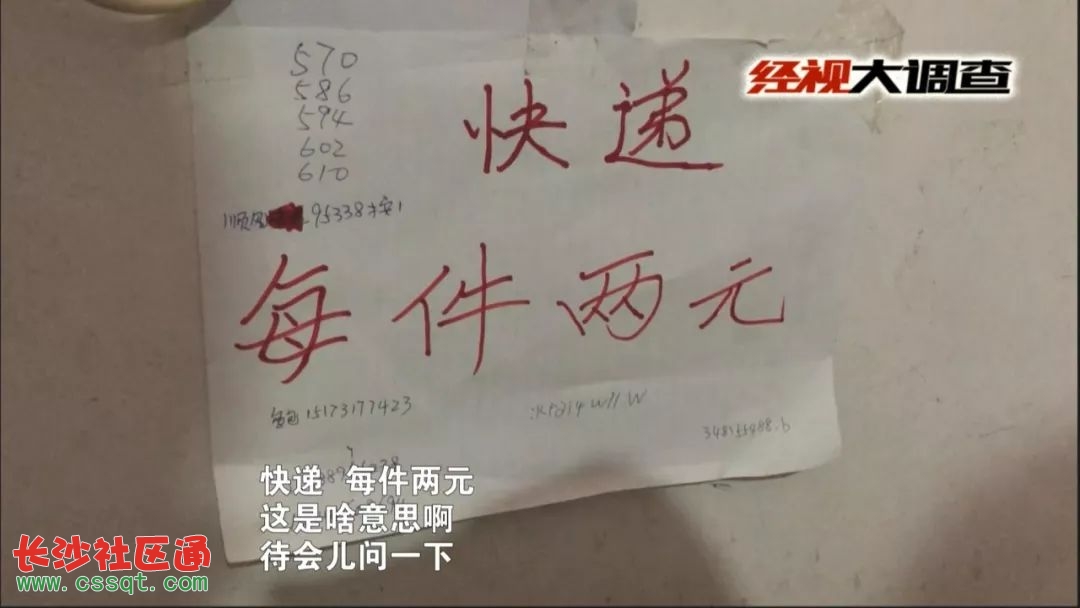 经视大调查
570
586
594
602
610
快递
顺风 95338转1
每件两元
15173177423
快递 每件两元
这是啥意思啊
待会儿问一下
长沙社区通
www.cssqt.com